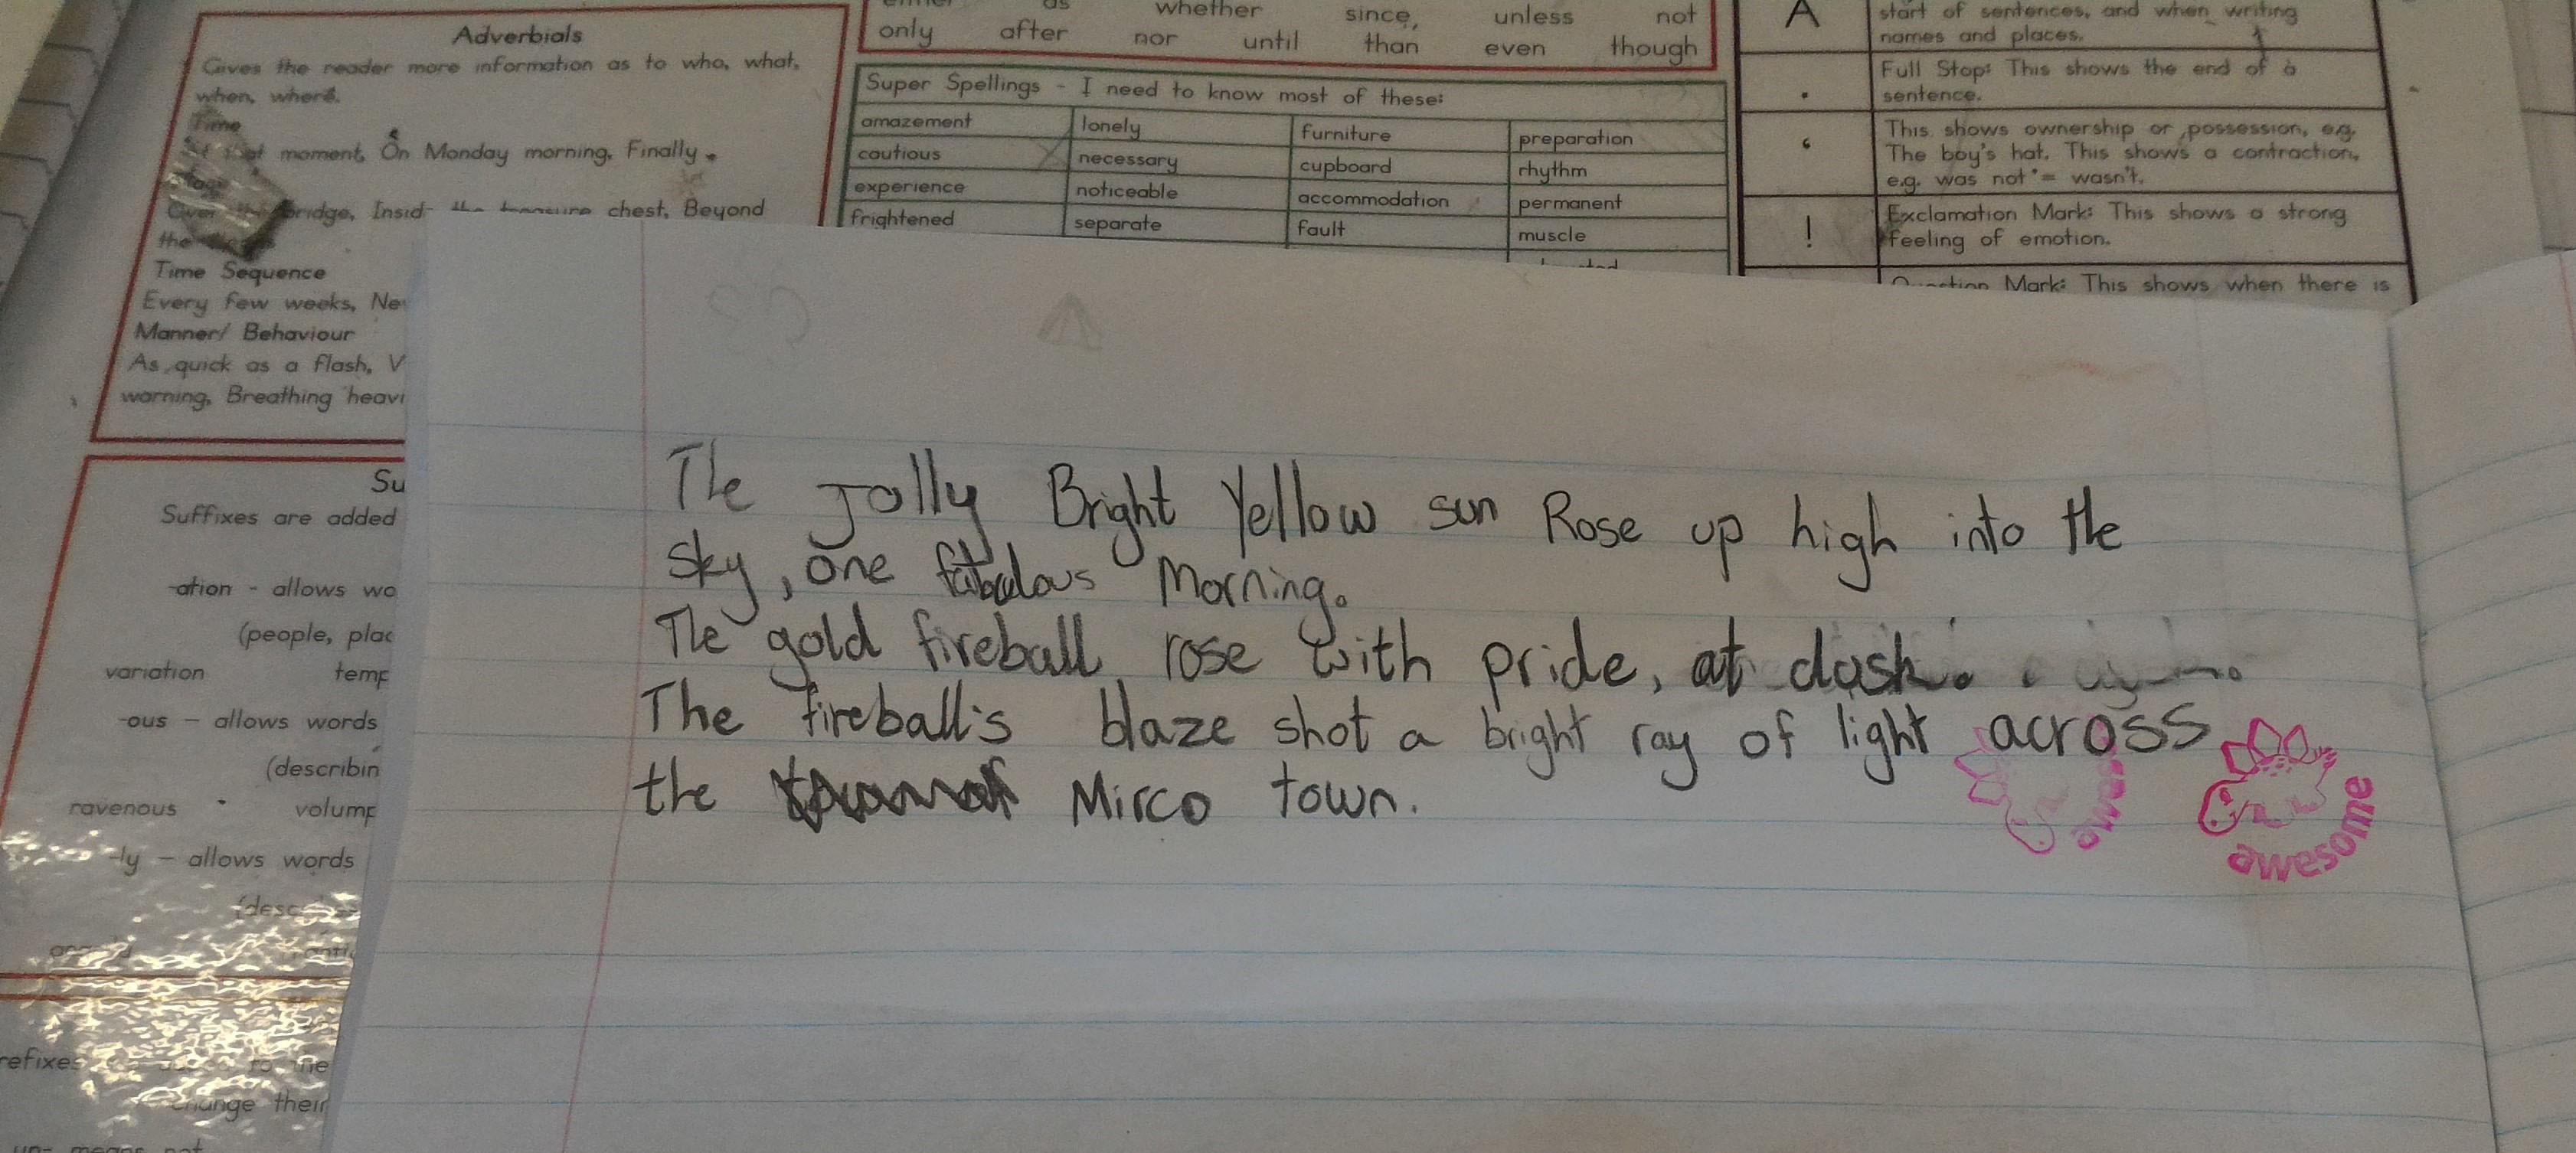 Adverbials
Gives the reader more information as to who, what,
when, where.
Time
moment, On Monday morning, Finally
bridge, the treasure chest, Beyond
the
Time Sequence
Every few weeks,
Manner/ Behaviour
As quick as a flash,
warning, Breathing
Suffixes are added
-ation - allows
(people,
variation
-ous - allows words
ravenous
-ly - allows words
to the
change their
as whether since, unless not
only after nor until than even though
Super Spellings - I need to know most of these:
amazement lonely furniture preparation
cautious necessary cupboard rhythm
experience noticeable accommodation permanent
frightened separate fault muscle
A start of sentences, and when writing
names and places.
. Full Stop: This shows the end of a
sentence.
‘ This shows ownership or possession, e.g.
The boy's hat. This shows a contraction,
e.g. was not = wasn't.
! Exclamation Mark: This shows a strong
feeling of emotion.
Question Mark: This shows when there is
The Jolly Bright Yellow sun Rose up high into the
sky, one fabulous Morning.
The gold fireball rose with pride, at dusk.
The fireball's blaze shot a bright ray of light across
the Mirco town.
awesome